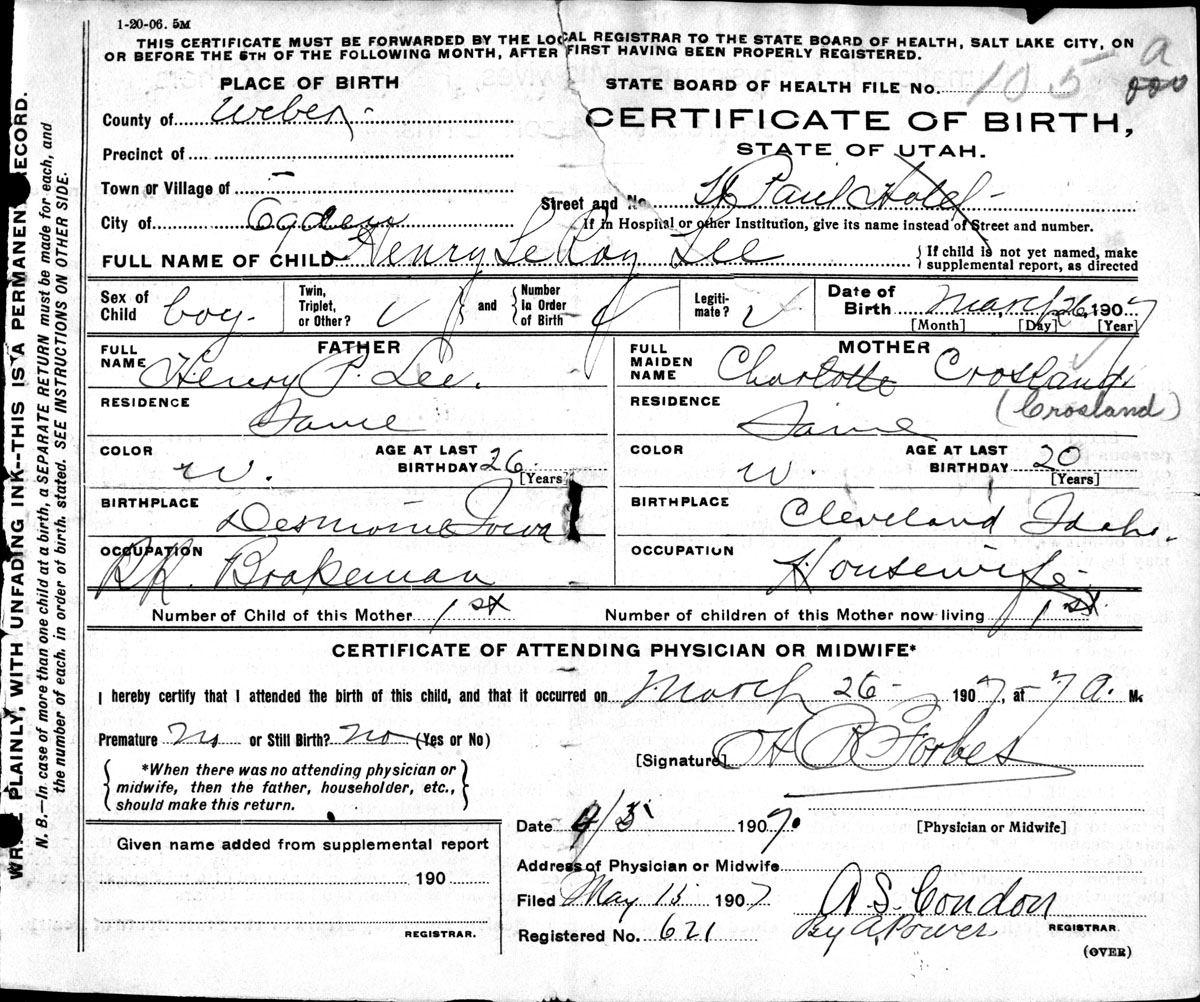 1-20-06. 5M
THIS CERTIFICATE MUST BE FORWARDED BY THE LOCAL REGISTRAR TO THE STATE BOARD OF HEALTH, SALT LAKE CITY, ON
OR BEFORE THE 5TH OF THE FOLLOWING MONTH, AFTER FIRST HAVING BEEN PROPERLY REGISTERED.
PLACE OF BIRTH
STATE BOARD OF HEALTH FILE No. 105 a
County of Weber
CERTIFICATE OF BIRTH,
STATE OF UTAH.
Precinct of
Town or Village of -
Street and No. St Paul Hotel
City of Ogden
If in Hospital or other Institution, give its name instead of Street and number.
FULL NAME OF CHILD Henry LeRoy Lee
{If child is not yet named, make
supplemental report, as directed
Sex of Child boy.
Twin, Triplet, or Other?
and
Number In Order of Birth
Legiti-mate?
Date of Birth March 26, 1907
[Month] [Day] [Year]
FATHER
FULL NAME Henry P. Lee.
RESIDENCE Same
COLOR W.
AGE AT LAST BIRTHDAY 26
[Years]
BIRTHPLACE Desmoine Iowa
OCCUPATION RR. Brakeman
MOTHER
FULL MAIDEN NAME Charlotte Crosland
(Crosland)
RESIDENCE Same
COLOR W.
AGE AT LAST BIRTHDAY 20
[Years]
BIRTHPLACE Cleveland Idaho.
OCCUPATION Housewife
Number of Child of this Mother 1st
Number of children of this Mother now living 1st.
CERTIFICATE OF ATTENDING PHYSICIAN OR MIDWIFE*
I hereby certify that I attended the birth of this child, and that it occurred on March 26 - 1907, at 7 A. M.
Premature No or Still Birth? No (Yes or No)
[Signature]
Forbes
{*When there was no attending physician or
midwife, then the father, householder, etc.,
should make this return.}
Date 4/3 1907.
[Physician or Midwife]
Given name added from supplemental report
Address of Physician or Midwife
190
Filed May 15 1907
A. S. Condon
REGISTRAR.
Registered No. 621
By A. Power
REGISTRAR.
(OVER)
WRITE PLAINLY, WITH UNFADING INK--THIS IS A PERMANENT RECORD.
N. B.—In case of more than one child at a birth, a SEPARATE RETURN must be made for each, and
the number of each, in order of birth, stated. SEE INSTRUCTIONS ON OTHER SIDE.